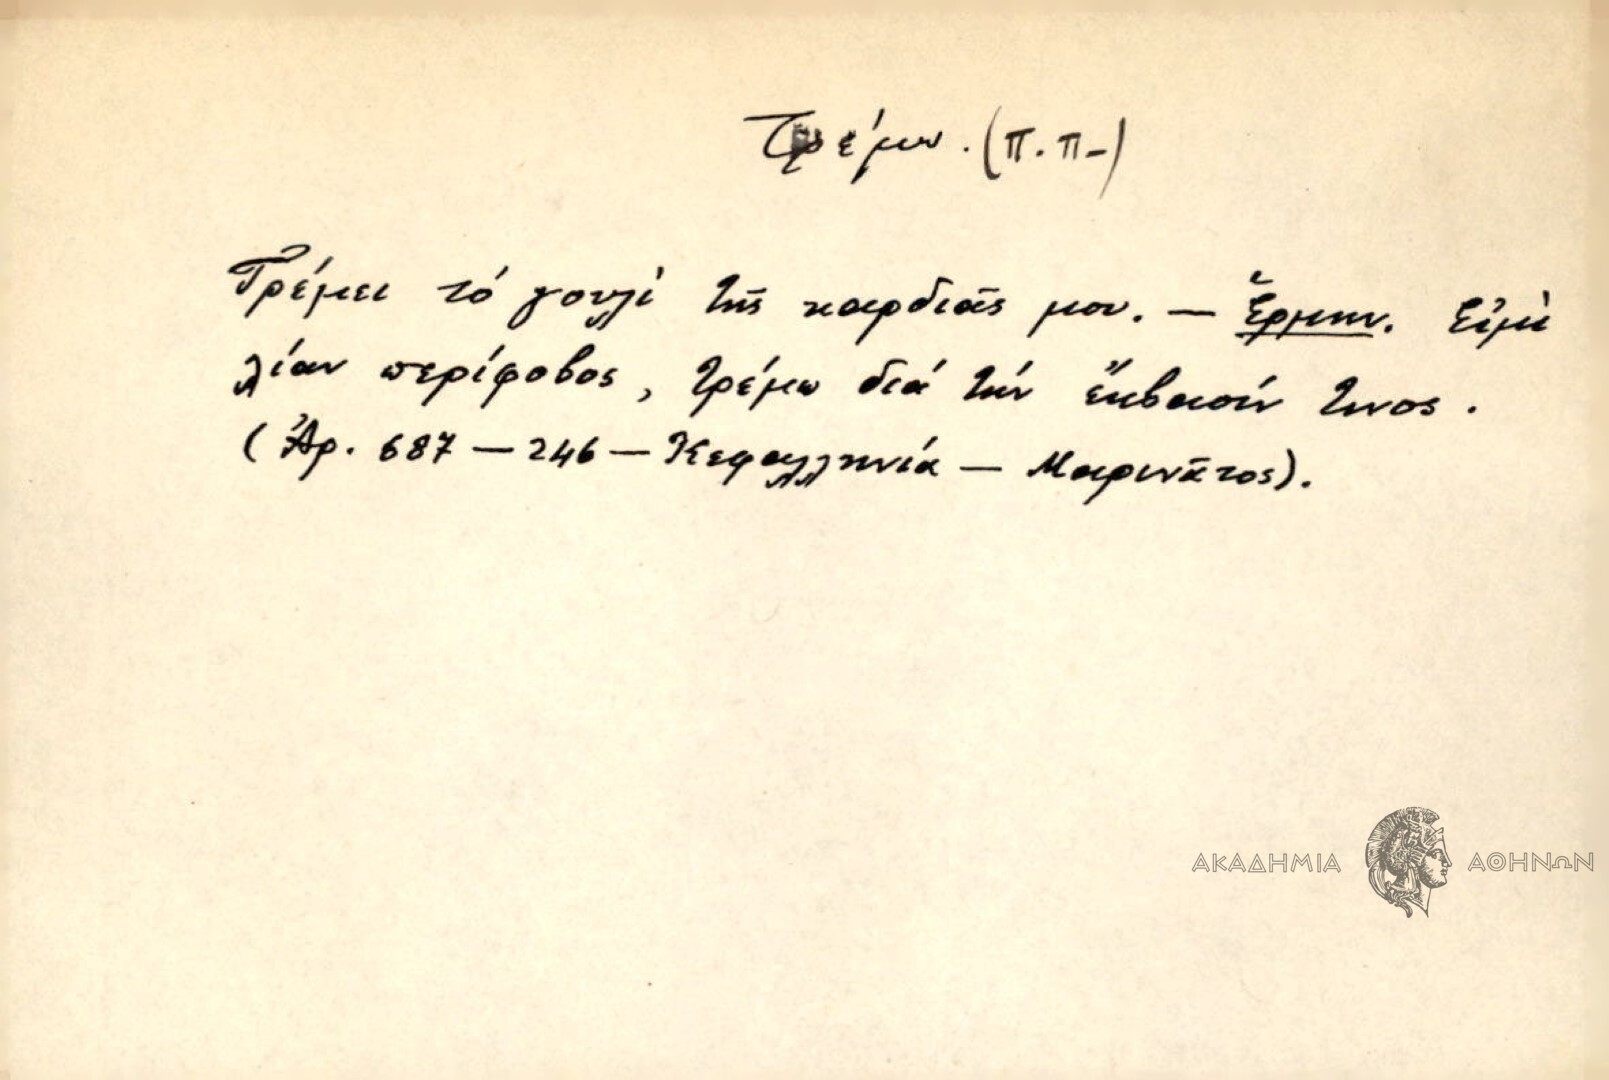 Τρέμω. (Π. Π-)
Τρέμει τό γουλί τῆς καρδιᾶς μου. — Ἑρμην. Εἶμαι
λίαν περίφοβος, τρέμω διά τήν ἔκβασίν τινος.
(Ἀρ. 687 — 246 — Κεφαλληνία — Μαρινᾶτος).
ΑΚΑΔΗΜΙΑ ΑΘΗΝΩΝ